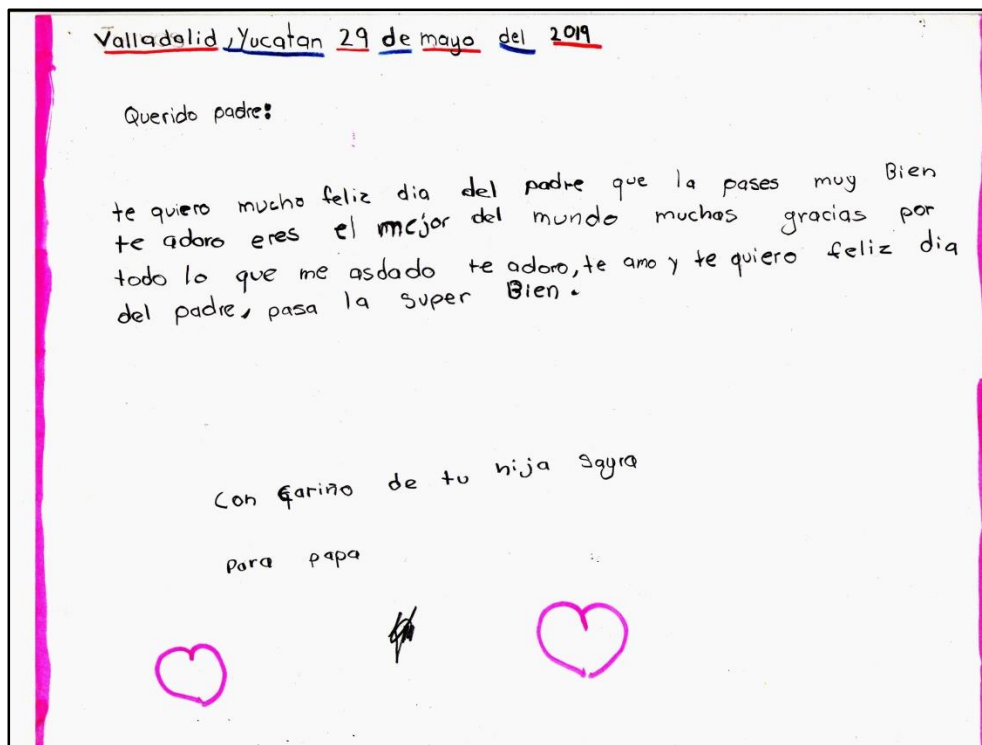 Valladolid, Yucatan 29 de mayo del 2019
Querido padre:
te quiero mucho feliz dia del padre que la pases muy Bien
te adoro eres el mejor del mundo muchas gracias por
todo lo que me asdado te adoro, te amo y te quiero feliz dia
del padre, pasa la super Bien.
Con cariño de tu hija Sayra
para papa